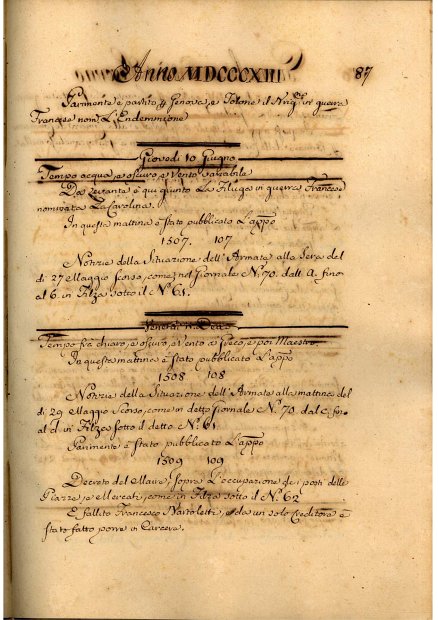 Anno MDCCCXIII 87
Parimente è partito p Genova, e Tolone il Brig. in guerra
Francese nom.º L'Endemmione
Giovedì 10 Giugno
Tempo acqua, e oscuro, e vento variabile
Da Levante è qui giunto La Filuga in guerra Francese
nominata La Carolina.
In questa mattina è stato pubblicato L'appº
1507. 107
Notizie della Situazione dell'Armate alla Sera del
dì 27 Maggio scorso, come nel Giornale Nº. 70. dall'A. fino
al 6. in Filza sotto il Nº 61.
Venerdì 11 Detto
Tempo fra chiaro, e oscuro, e Vento a Greco, e poi Maestro.
In questa mattina è stato pubblicato L'appº
1508 108
Notizie della Situazione dell'Armate alla mattina del
dì 29 Maggio scorso, come in detto Giornale Nº. 70. dal C. fino
al d. in Filza sotto il detto Nº. 61.
Parimente è stato pubblicato L'appº
1509 109
Decreto del Maire, sopra L'occupazione de i posti delle
Piazze, e Mercati, come in Filza sotto il Nº. 62
È fallito Francesco Bartoletti, e da un solo Creditore è
stato fatto porre in Carcere.